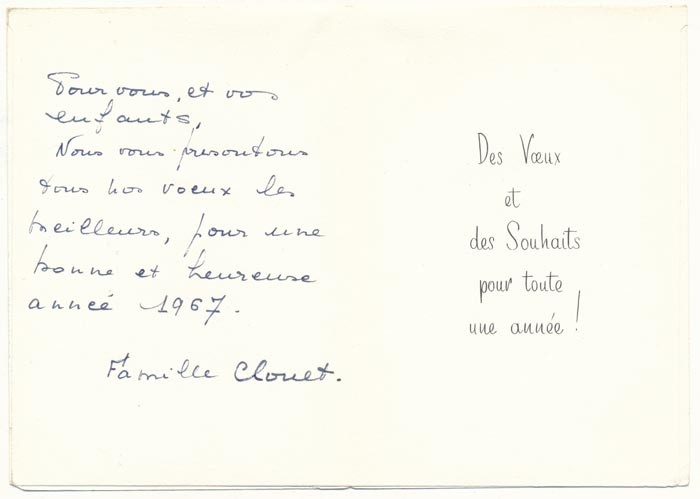 Pour vous, et vos
enfants,
Nous vous présentons
tous nos voeux les
meilleurs, pour une
bonne et heureuse
année 1967.
Famille Clouet.
Des Vœux
et
des Souhaits
pour toute
une année !